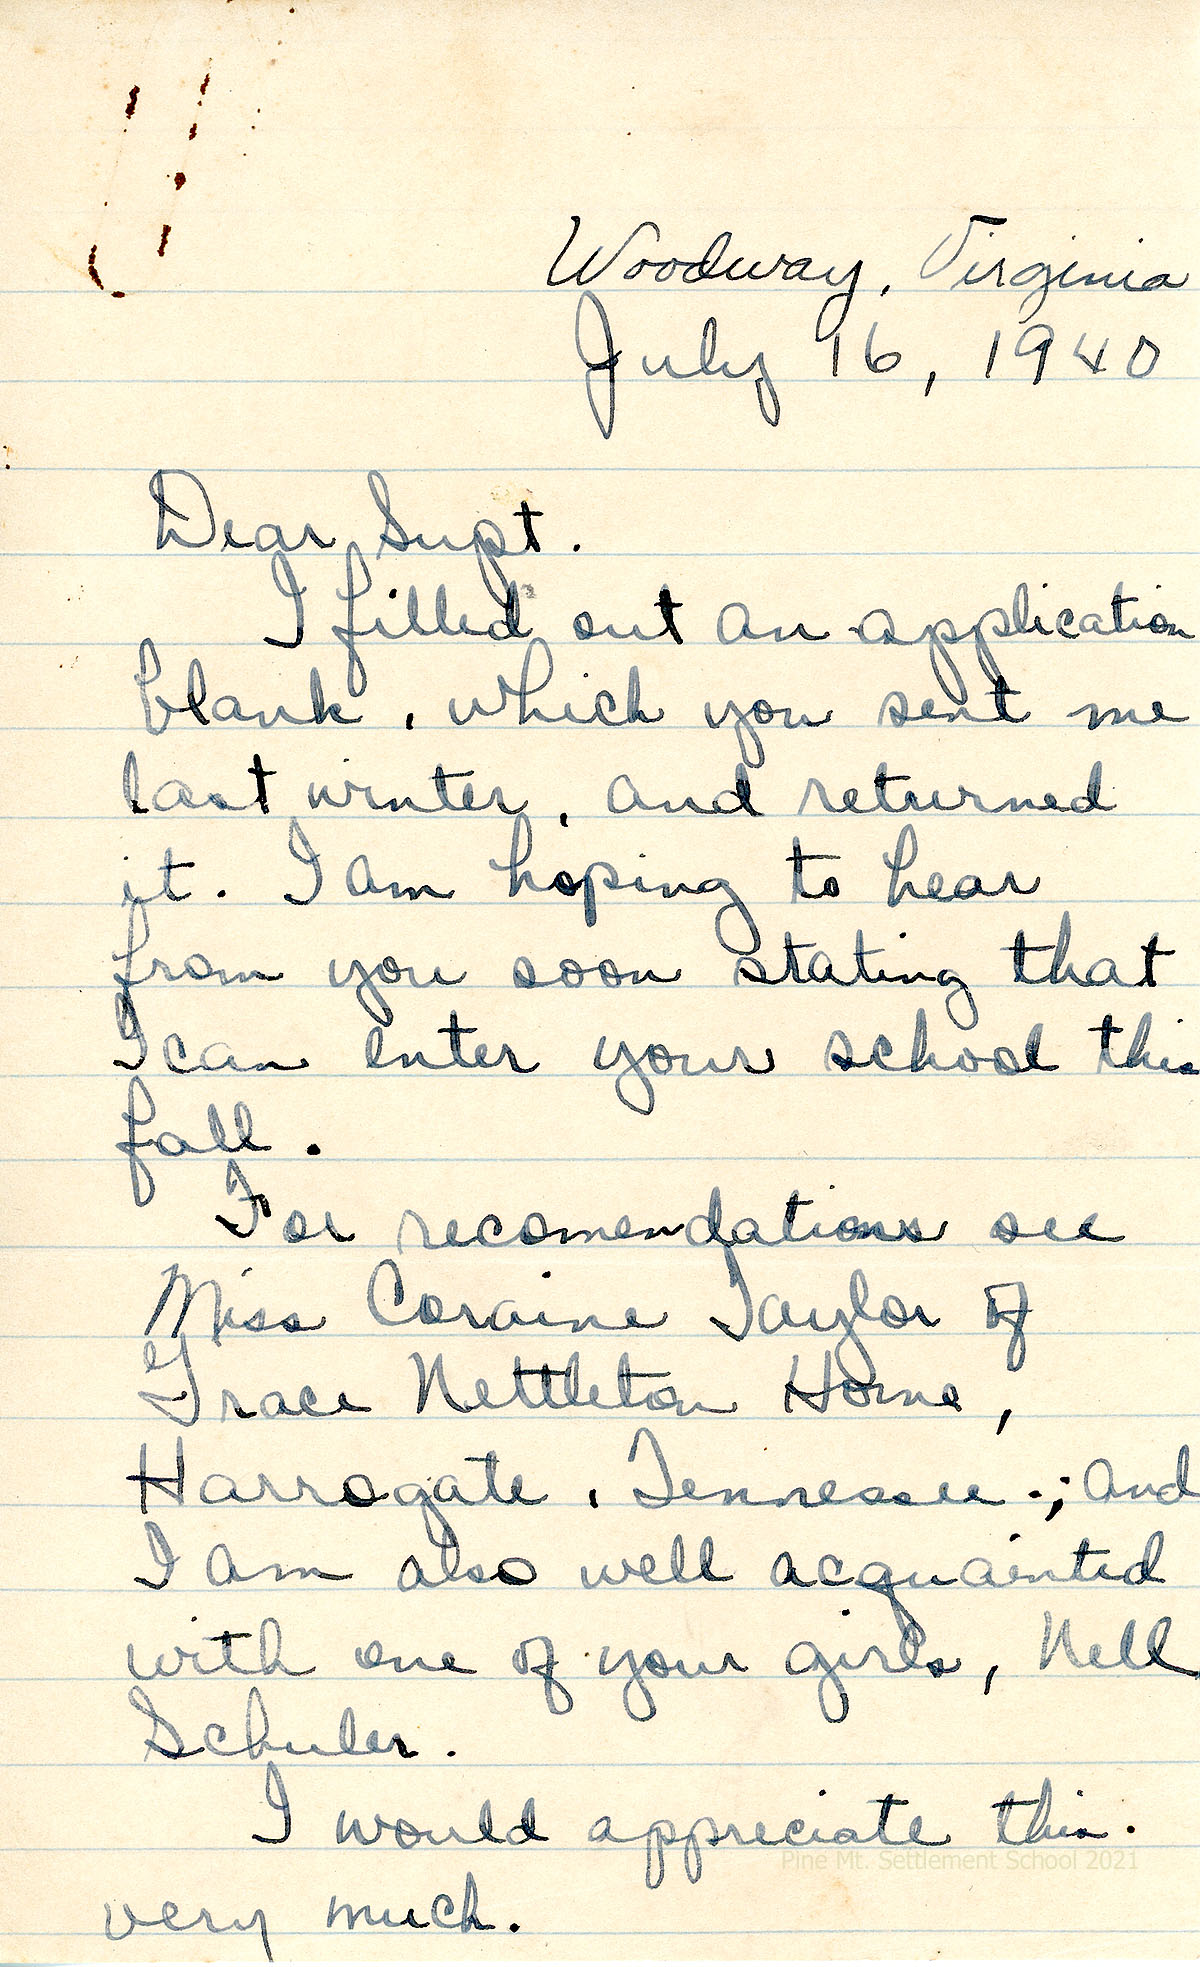 Woodway, Virginia
July 16, 1940
Dear Supt.
I filled out an application
blank, which you sent me
last winter, and returned
it. I am hoping to hear
from you soon stating that
I can enter your school this
fall.
For recomendations see
Miss Coraine Taylor of
Grace Nettleton Home,
Harrogate, Tennessee.; and
I am also well acquainted
with one of your girls, Nell
Schuler.
I would appreciate this.
Pine Mt. Settlement School 2021
very much.